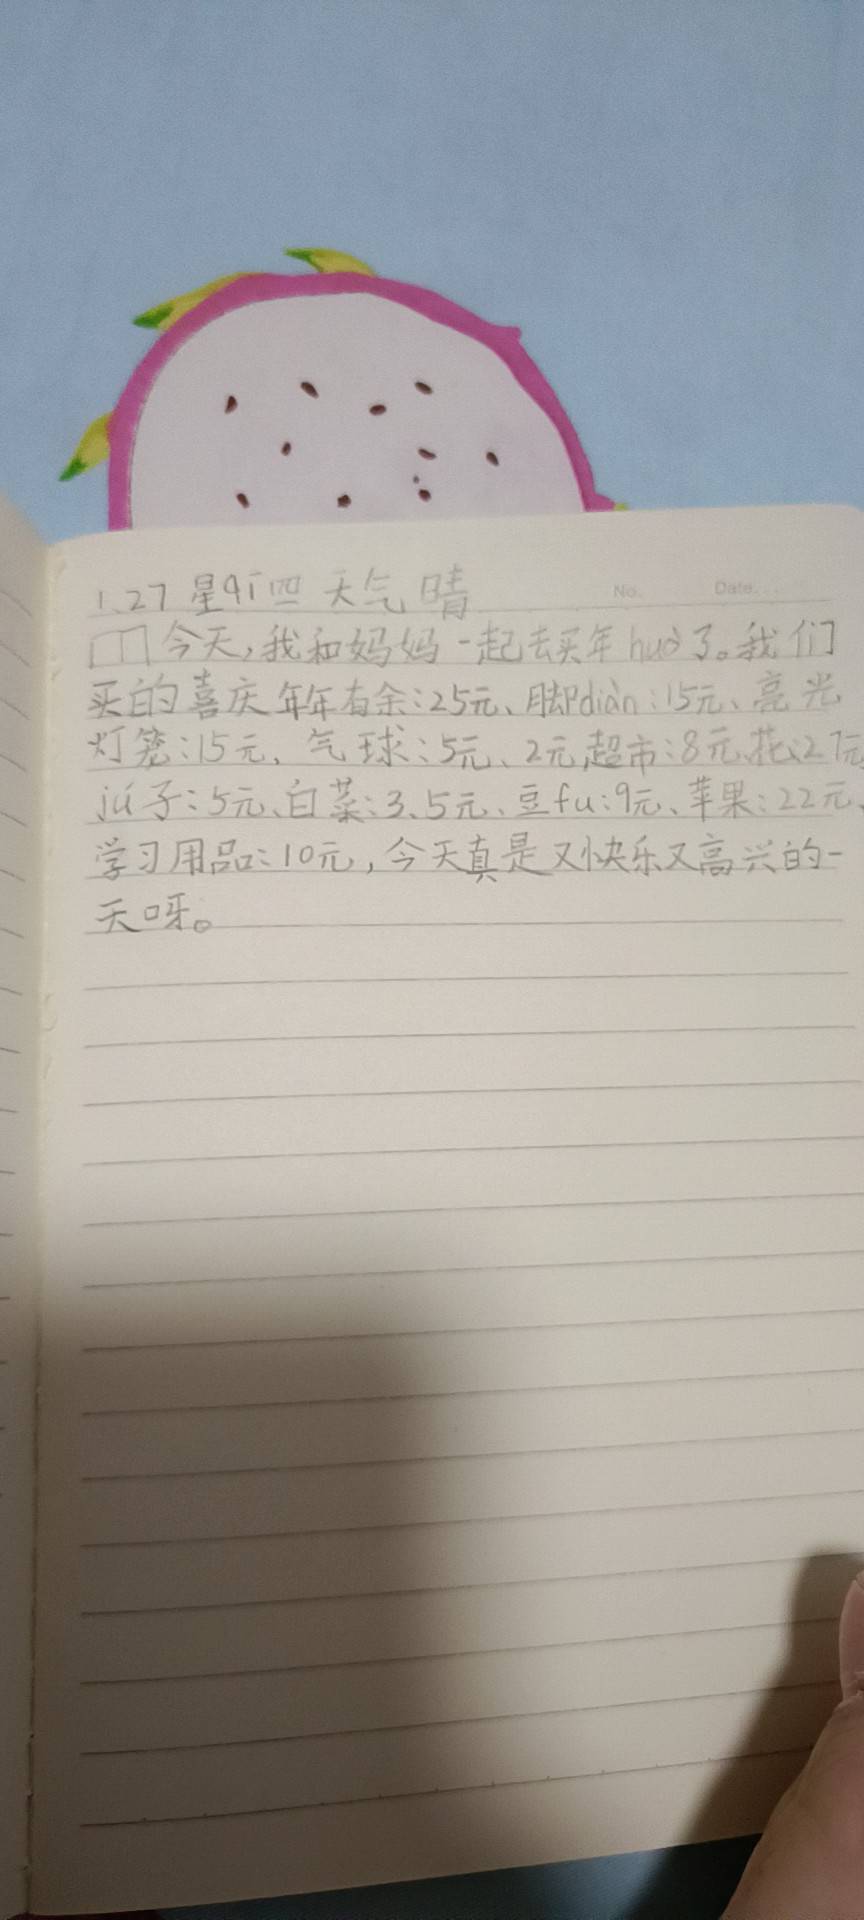 No. Date...
1.27 星qī四 天气晴
今天,我和妈妈一起去买年huò了。我们
买的喜庆年年有余:25元、脚diàn:15元、亮光
灯笼:15元、气球:5元、2元超市:8元、花:27元、
jú子:5元、白菜:3、5元、豆fu:9元、苹果:22元、
学习用品:10元,今天真是又快乐又高兴的一
天呀。